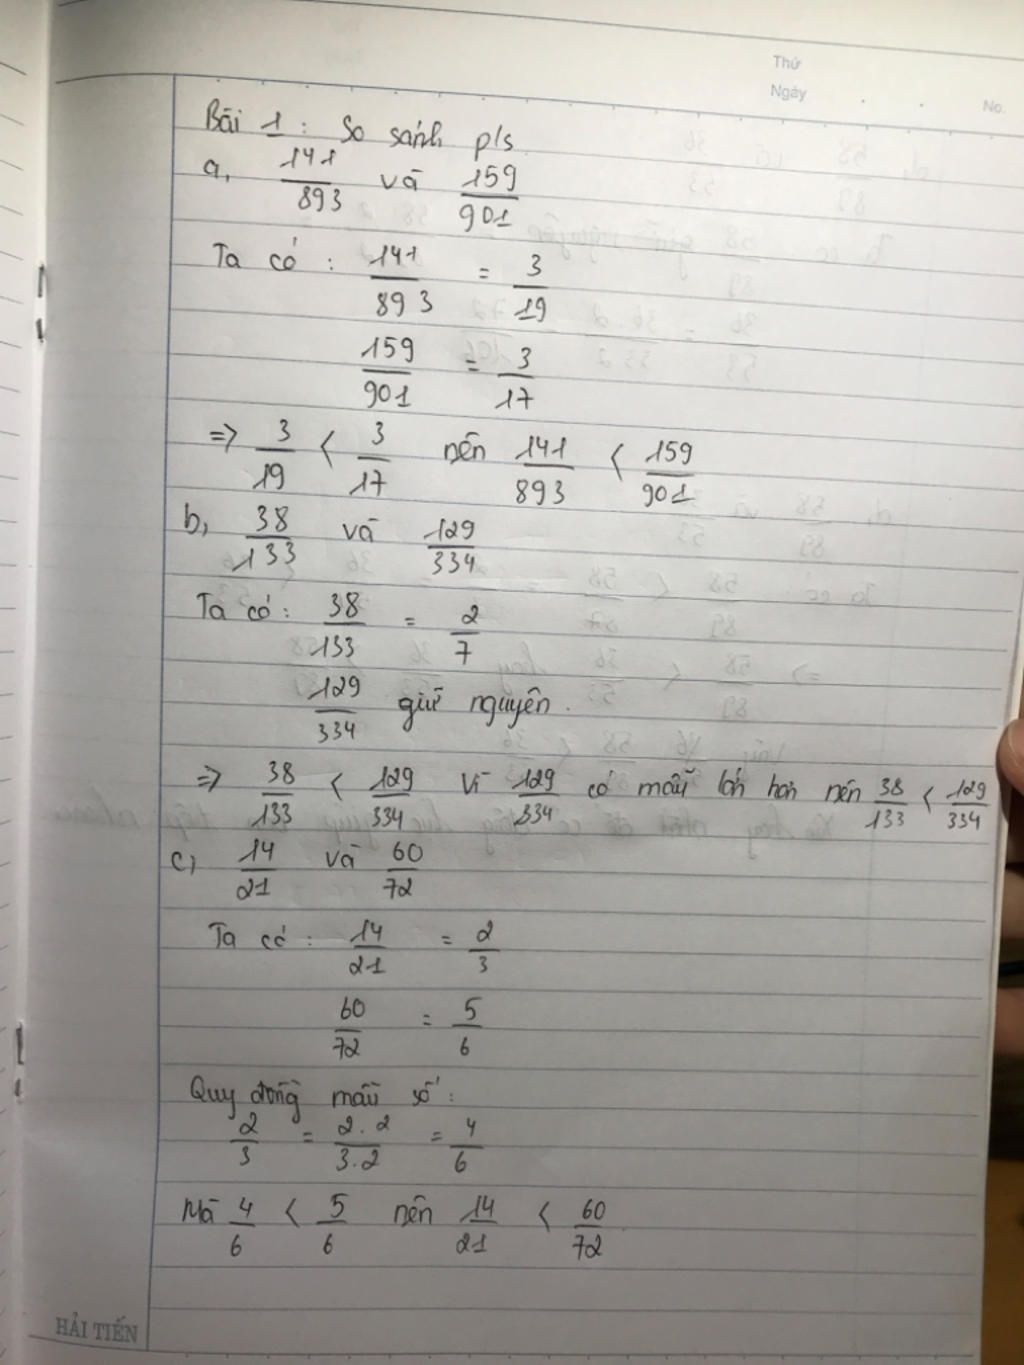 Thứ
Ngày
No.
Bài 1 : So sánh p/s
a, 141/893 và 159/901
Ta có : 141/893 = 3/19
159/901 = 3/17
=> 3/19 < 3/17 nên 141/893 < 159/901
b, 38/133 và 129/334
Ta có : 38/133 = 2/7
129/334 giữ nguyên .
=> 38/133 < 129/334 Vì 129/334 có mẫu lớn hơn nên 38/133 < 129/334
c, 14/21 và 60/72
Ta có : 14/21 = 2/3
60/72 = 5/6
Quy đồng mẫu số :
2/3 = 2.2/3.2 = 4/6
Mà 4/6 < 5/6 nên 14/21 < 60/72
HẢI TIẾN